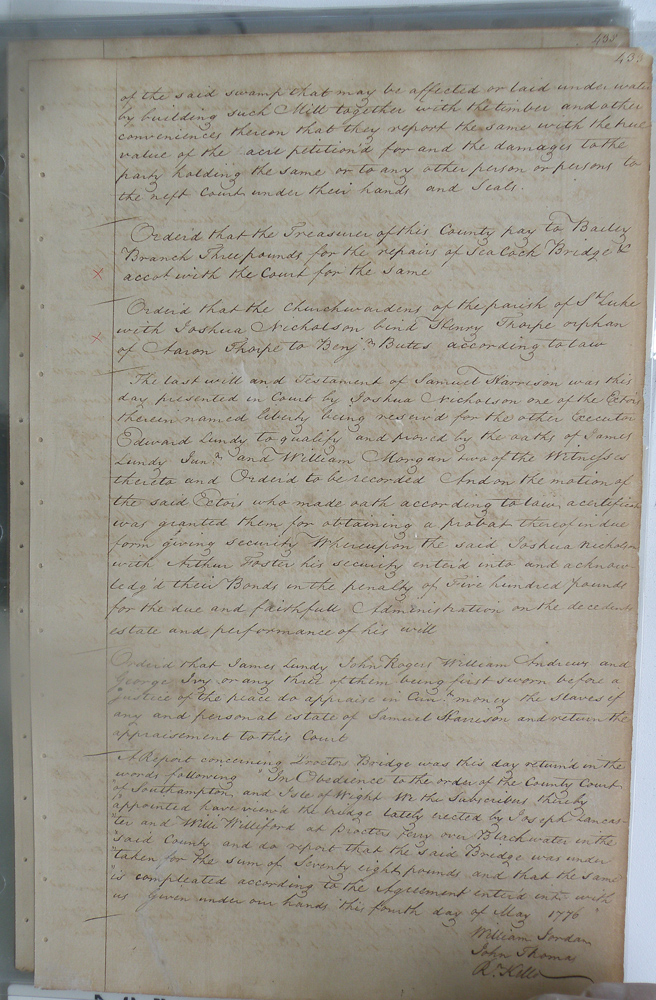 438
43
of the said swamp that may be affected or laid under water
by building such Mill together with the timber and other
conveniences thereon that they report the same with the true
value of the acre petition'd for and the damages to the
party holding the same or to any other person or persons to
the next Court under their hands and Seals.
Orderd that the Treasurer of this County pay to Bailey
Branch Three pounds for the repairs of Sea Cock Bridge &
accot with the Court for the same
Orderd that the Churchwardens of the parish of St Luke
with Joshua Nicholson bind Henry Thorpe orphan
of Aaron Thorpe to Benjn Butts according to law
The last will and Testament of Samuel Harrison was this
day presented in Court by Joshua Nicholson one of the Ectors
therein named liberty being reserv'd for the other Executor
Edward Lundy to qualify and proved by the oaths of James
Lundy Junr and William Morgan two of the Witnesses
thereto and Orderd to be recorded And on the motion of
the said Ectors who made oath according to law a certificate
was granted them for obtaining a probat thereof in due
form giving security Whereupon the said Joshua Nicholson
with Arthur Foster his security enter'd into and acknow
ledg'd their Bonds in the penalty of Five hundred pounds
for the due and faithfull Administration on the decedents
estate and performance of his will
Orderd that James Lundy John Rogers William Andrews and
George Ivy or any three of them being first sworn before a
justice of the peace do appraise in Curr. money the slaves if
any and personal estate of Samuel Harrison and return the
appraisement to this Court
A Report concerning Proctors Bridge was this day return'd in the
words following "In Obedience to the order of the County Court
"of Southampton and Isle of Wight We the Subscribers thereby
"appointed have view'd the bridge lately erected by Joseph Lancas-
"ter and Willi Williford at Proctors ferry over Blackwater in the
"said County and do report that the said Bridge was under
"taken for the sum of Seventy eight pounds and that the same
"is compleated according to the Agreement enter'd into with
us Given under our hands this fourth day of May 1776"
William Jordan
John Thomas
Rd Kello